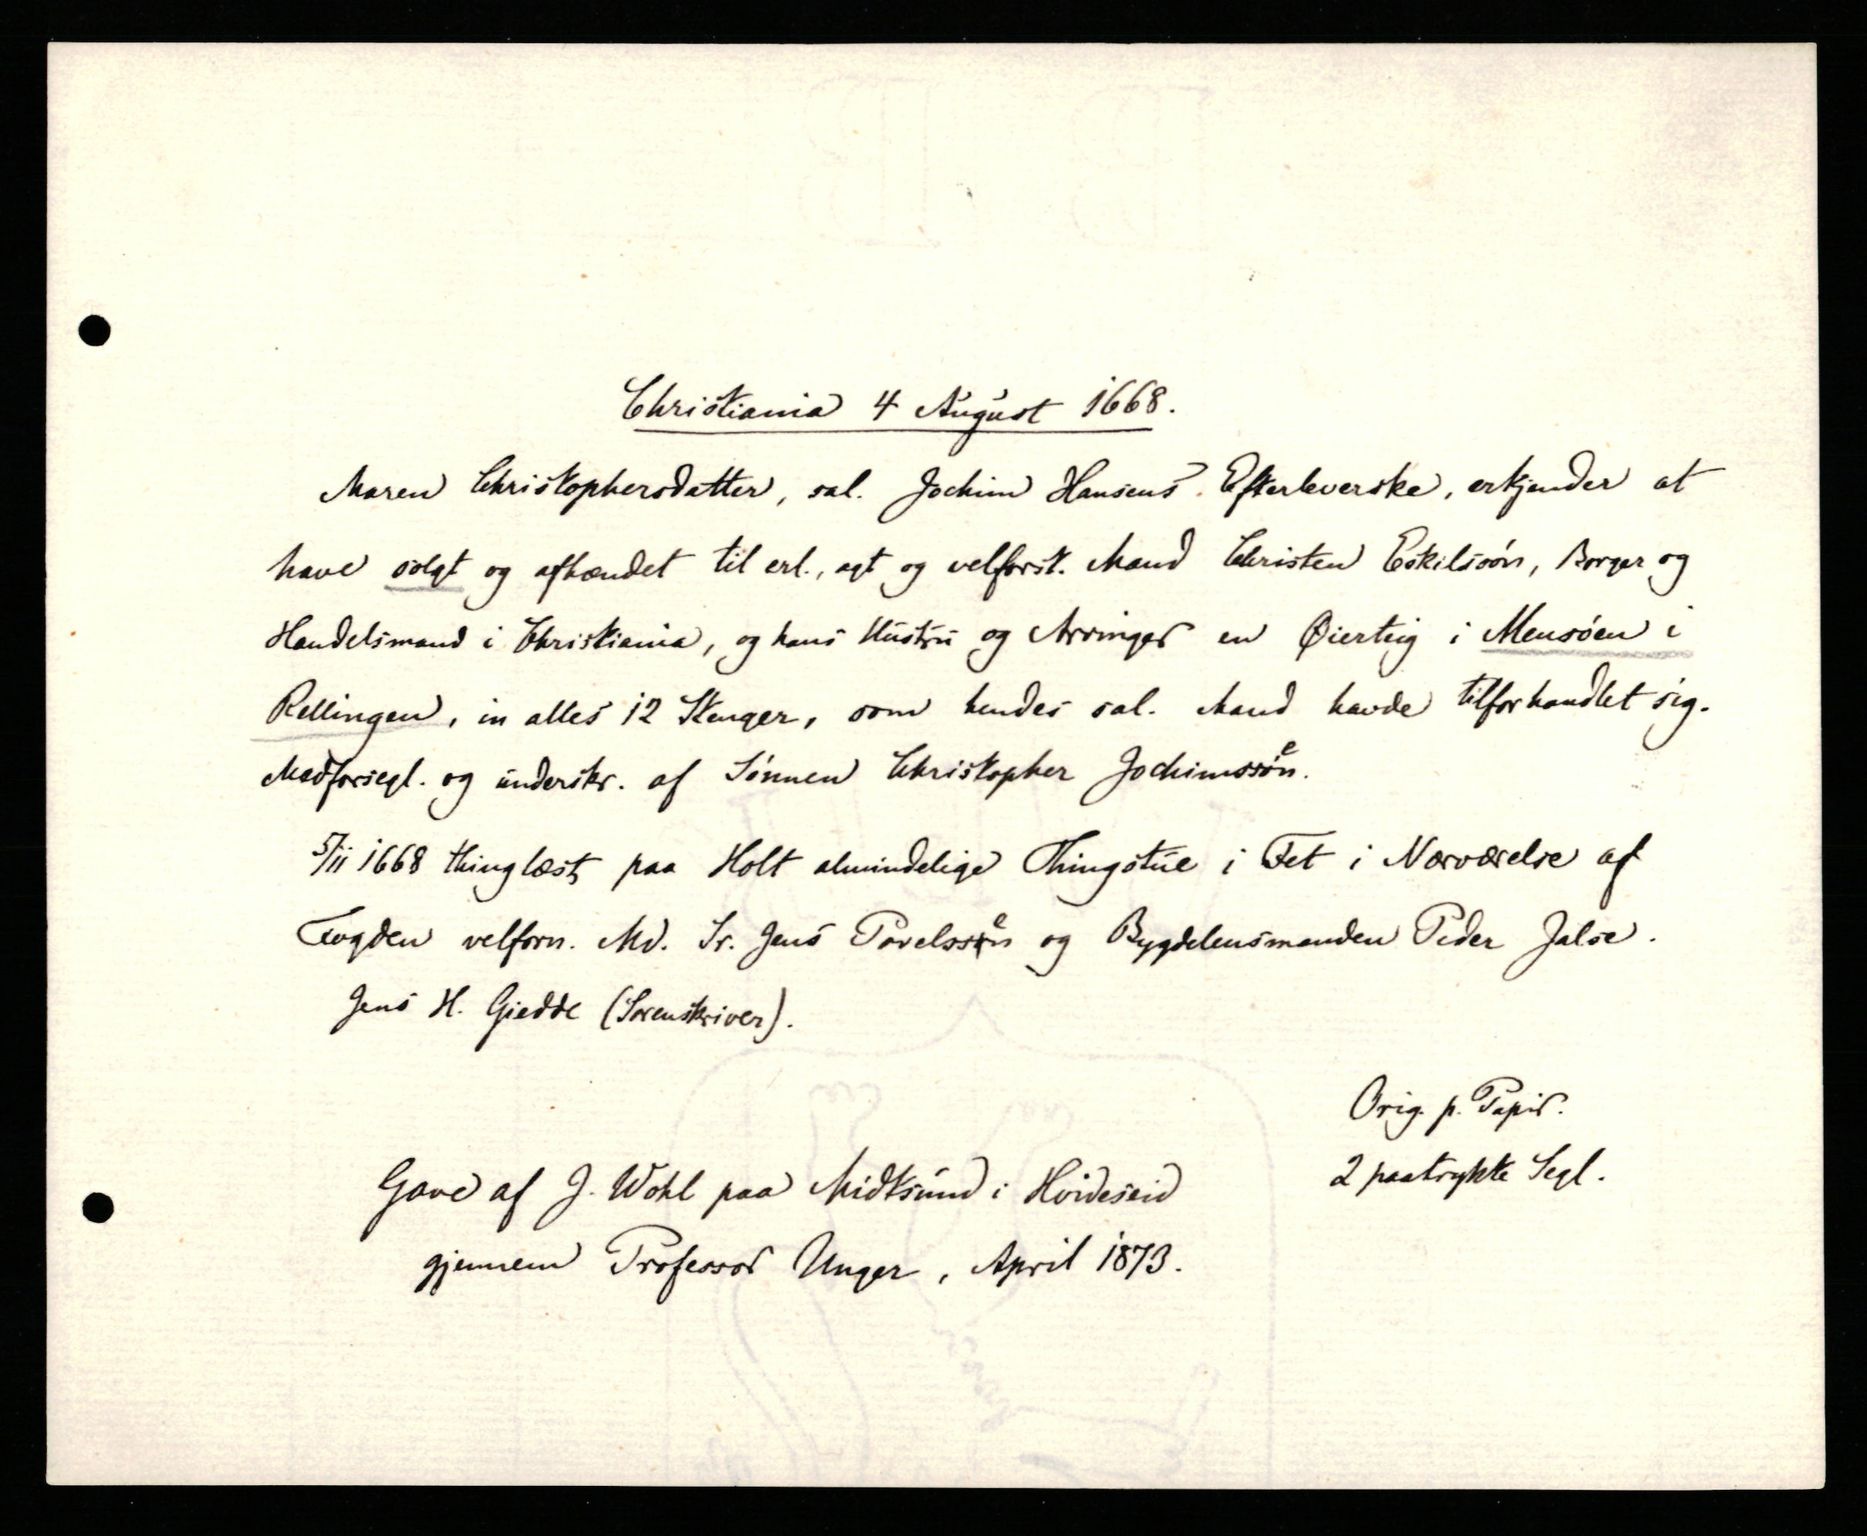 Christiania 4 August 1668.
Maren Christophersdatter, sal. Jochim Hansens Efterleverske, erkjender at
have solgt og afhændet til erl., agt og velforst. Mand Christen Eskilssön, Borger og
Handelsmand i Christiania, og hans Hustru og Arvinger en Øierteig i Mensöen i
Rellingen, in alles 12 Stenger, som hendes sal. Mand havde tilforhandlet sig.
Medforsegl. og underskr. af Sönnen Christopher Jochimssøn.
5/11 1668 thinglæst paa Holt almindelige Thingstue i Fet i Nærværelse af
Fogden velforn. Md. Sr. Jens Povelssen og Bygdelensmanden Peder Jalse.
Jens H. Giedde (Sorenskriver).
Orig. p. Papir.
2 paatrykte Segl.
Gave af J. Wohl paa Midtsund i Hvideseid
gjennem Professor Unger, April 1873.